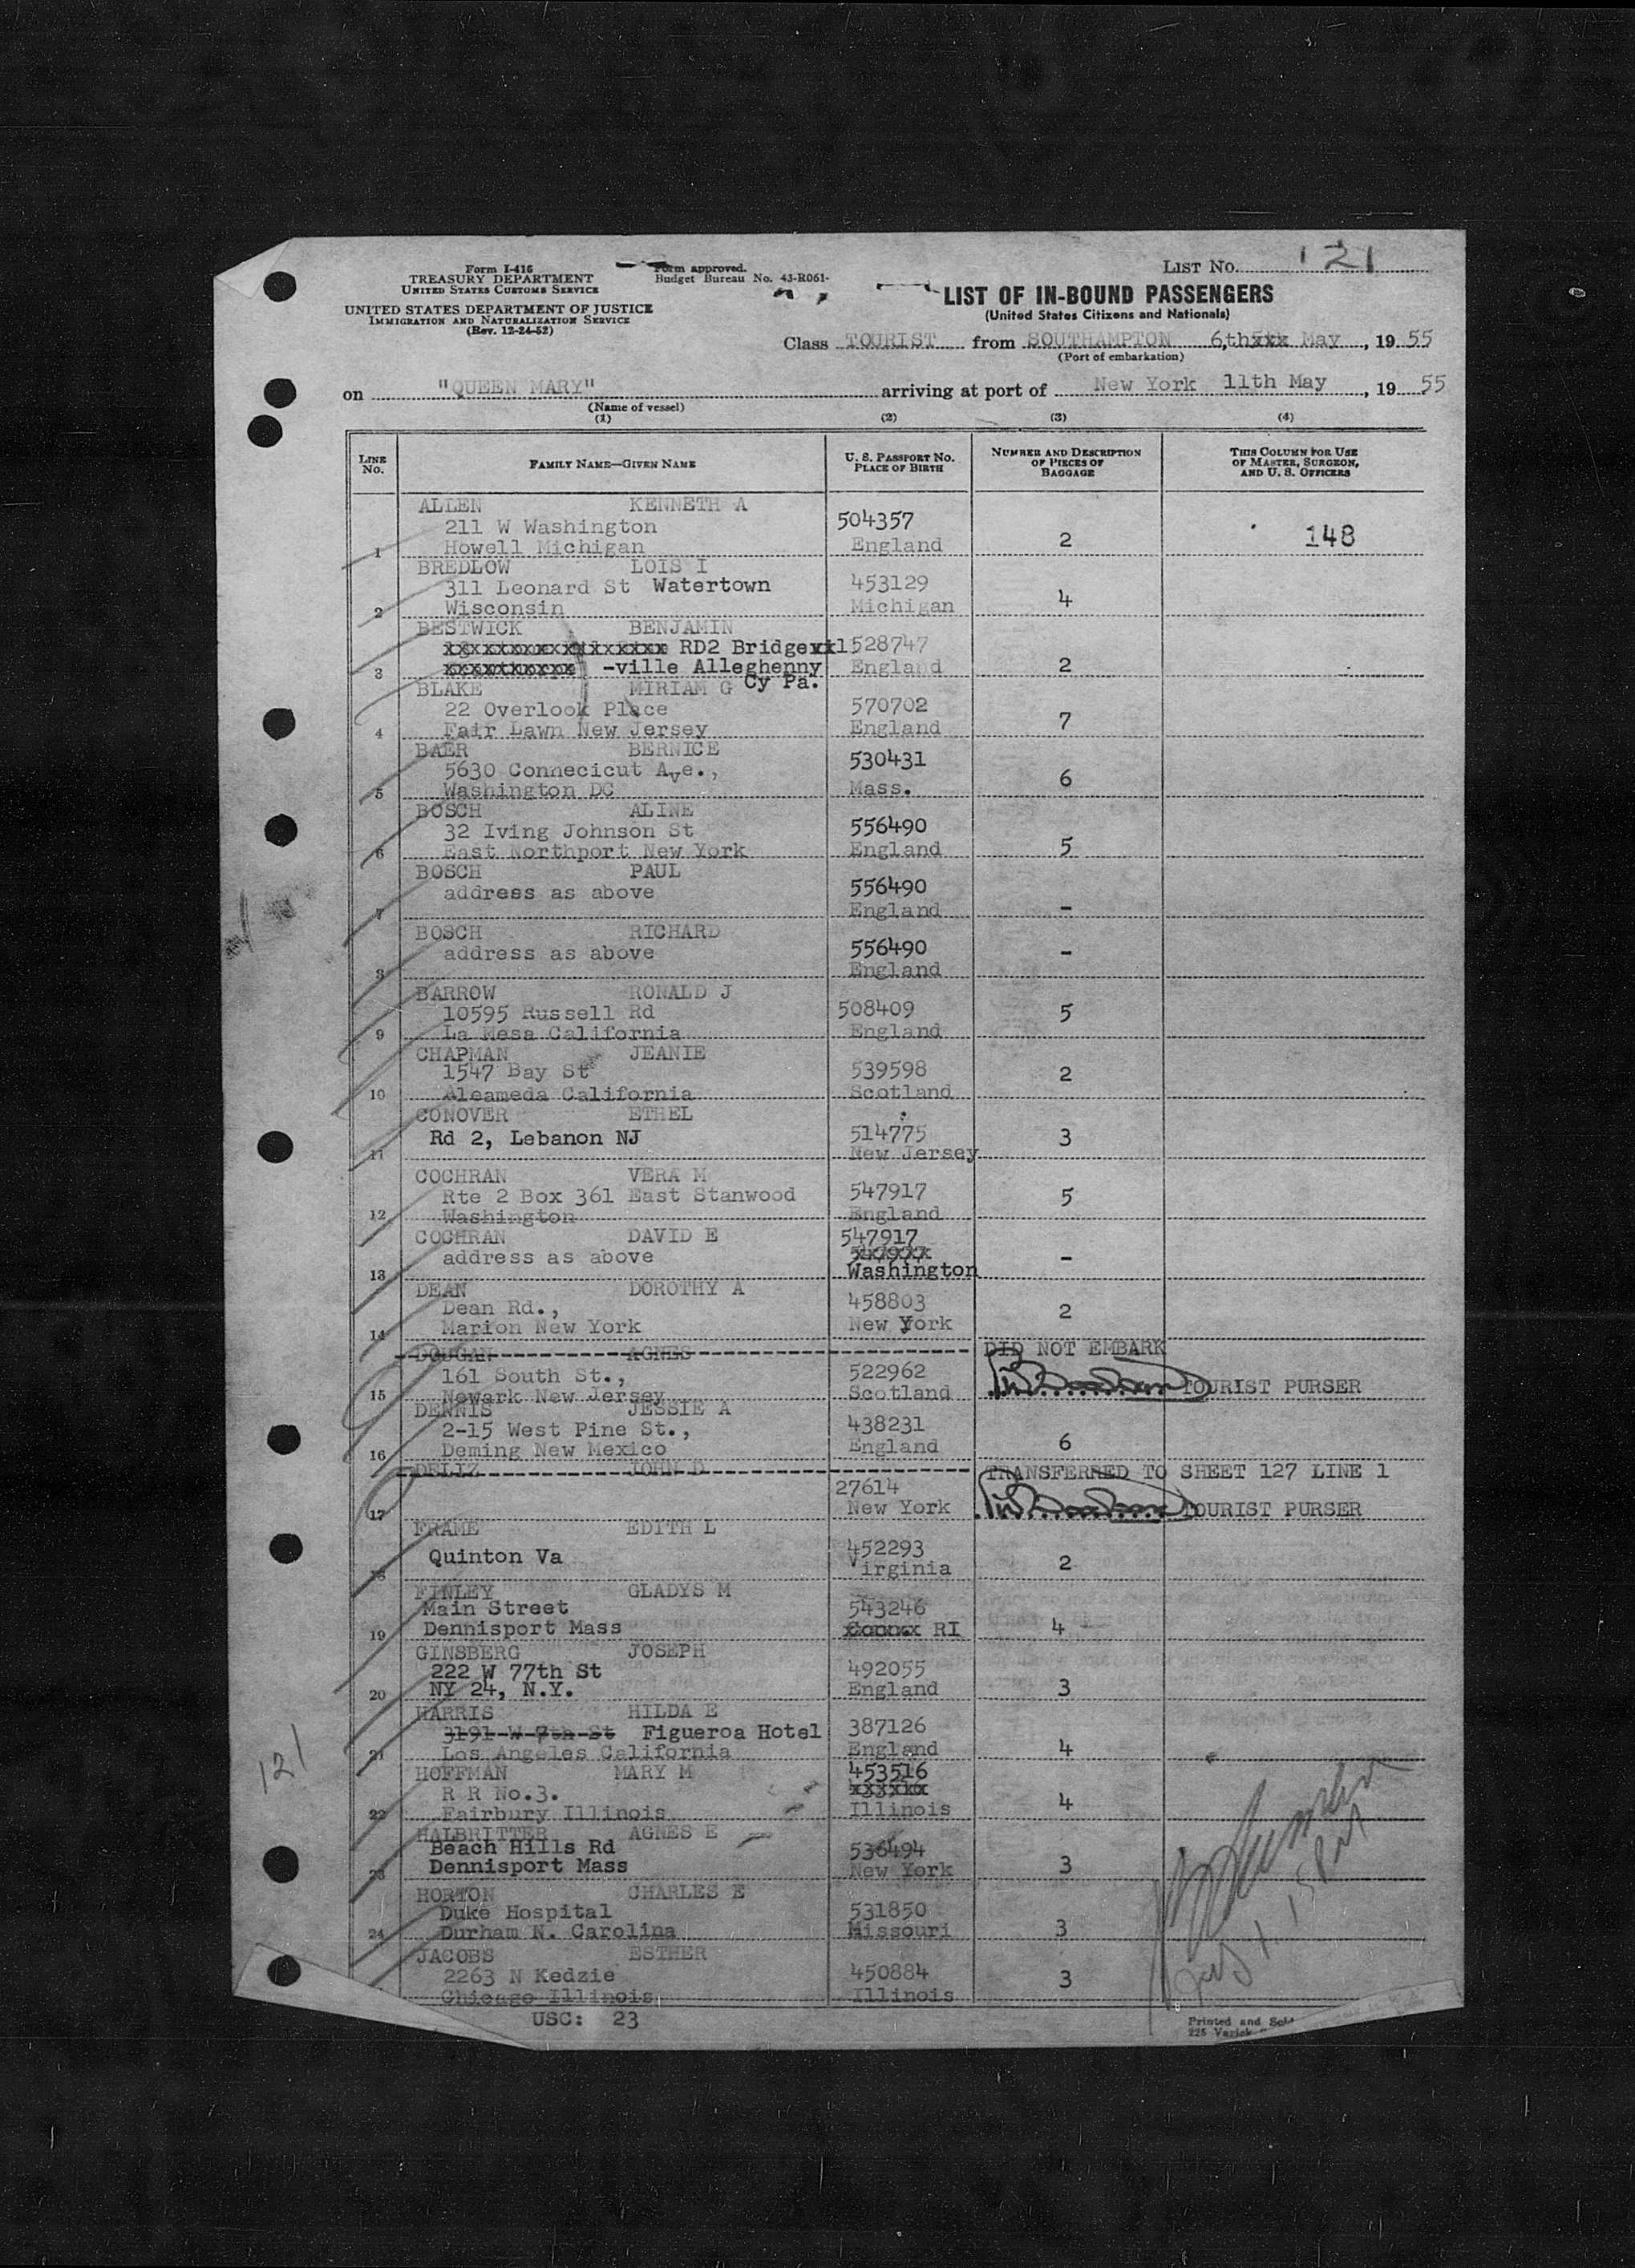 Form I-416
TREASURY DEPARTMENT
UNITED STATES CUSTOMS SERVICE
UNITED STATES DEPARTMENT OF JUSTICE
IMMIGRATION AND NATURALIZATION SERVICE
(Rev. 12-24-52)
Form approved.
Budget Bureau No. 43-R061-
LIST NO. 121
LIST OF IN-BOUND PASSENGERS
(United States Citizens and Nationals)
Class TOURIST from SOUTHAMPTON 6,th May, 1955
(Port of embarkation)
on "QUEEN MARY" arriving at port of New York 11th May, 1955
(Name of vessel)
(1) (2) (3) (4)
LINE NO.
FAMILY NAME—GIVEN NAME
U. S. PASSPORT NO.
PLACE OF BIRTH
NUMBER AND DESCRIPTION
OF PIECES OF
BAGGAGE
THIS COLUMN FOR USE
OF MASTER, SURGEON,
AND U. S. OFFICERS
ALLEN KENNETH A
211 W Washington 504357
1 Howell Michigan England 2 148
BREDLOW LOIS I
311 Leonard St Watertown 453129
2 Wisconsin Michigan 4
BESTWICK BENJAMIN
RD2 Bridgexxl 528747
3 -ville Alleghenny England 2
Cy Pa.
BLAKE MIRIAM G
22 Overlook Place 570702
4 Fair Lawn New Jersey England 7
BAER BERNICE
5630 Connecicut Ave., 530431
5 Washington DC Mass. 6
BOSCH ALINE
32 Iving Johnson St 556490
6 East Northport New York England 5
BOSCH PAUL
address as above 556490
7 England -
BOSCH RICHARD
address as above 556490
8 England -
BARROW RONALD J
10595 Russell Rd 508409
9 La Mesa California England 5
CHAPMAN JEANIE
1547 Bay St 539598
10 Aleameda California Scotland 2
CONOVER ETHEL
Rd 2, Lebanon NJ 514775
11 New Jersey 3
COCHRAN VERA M
Rte 2 Box 361 East Stanwood 547917
12 Washington England 5
COCHRAN DAVID E 547917
address as above
13 Washington -
DEAN DOROTHY A
Dean Rd., 458803
14 Marion New York New York 2
DOUGAN AGNES DID NOT EMBARK
161 South St., 522962
15 Newark New Jersey Scotland TOURIST PURSER
DENNIS JESSIE A
2-15 West Pine St., 438231
16 Deming New Mexico England 6
DELIZ JOHN D TRANSFERRED TO SHEET 127 LINE 1
27614
17 New York TOURIST PURSER
FRAME EDITH L
Quinton Va 452293
18 Virginia 2
FINLEY GLADYS M
Main Street 543246
19 Dennisport Mass RI 4
GINSBERG JOSEPH
222 W 77th St 492055
20 NY 24, N.Y. England 3
HARRIS HILDA E
3191 W 7th St Figueroa Hotel 387126
21 Los Angeles California England 4
HOFFMAN MARY M 453516
R R No.3.
22 Fairbury Illinois Illinois 4
HALBRITTER AGNES E
Beach Hills Rd 536494
23 Dennisport Mass New York 3
HORTON CHARLES E
Duke Hospital 531850
24 Durham N. Carolina Missouri 3
JACOBS ESTHER
2263 N Kedzie 450884
Chicago Illinois Illinois 3
USC: 23
121
Printed and Sol
225 Varick